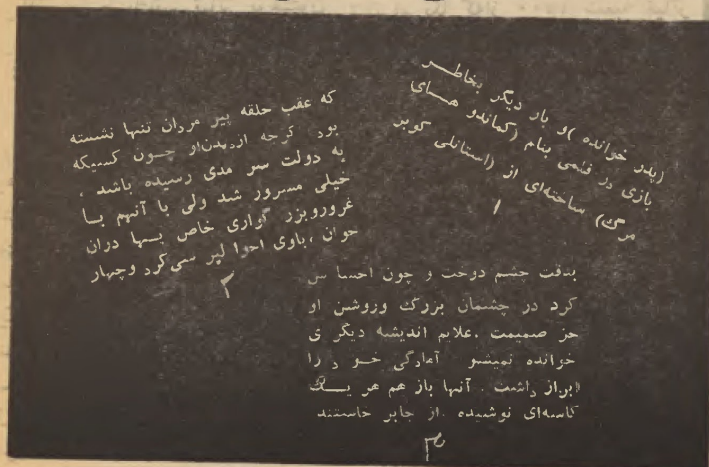 (پدر خوانده )و بار دیگر بخاطر
بازی در فلمی بنام (کماندو هسای
مرگ) ساخته‌ای از (استانلی کوبر
۱
که عقب حلقه پیر مردان تنها نشسته
بود گرچه ازدیدن‌او چسون کسیکه
به دولت سر مدی رسیده باشد ،
خیلی مسرور شد ولی با آنهم بسا
غروروبزر گواری خاص بسها دران
جوان ،باوی احوا لپر سی کرد وچهار
۲
بدقت چشم دوخت و چون احسا س
کرد در چشمان بزرگ وروشن او
جز صمیمت ،علایم اندیشه دیگر ی
خوانده نمیشو آمادگی خسو د را
ابراز داشت . آنها باز هم هر یسک
کاسه‌ای نوشیده از جابر خاستند
۳